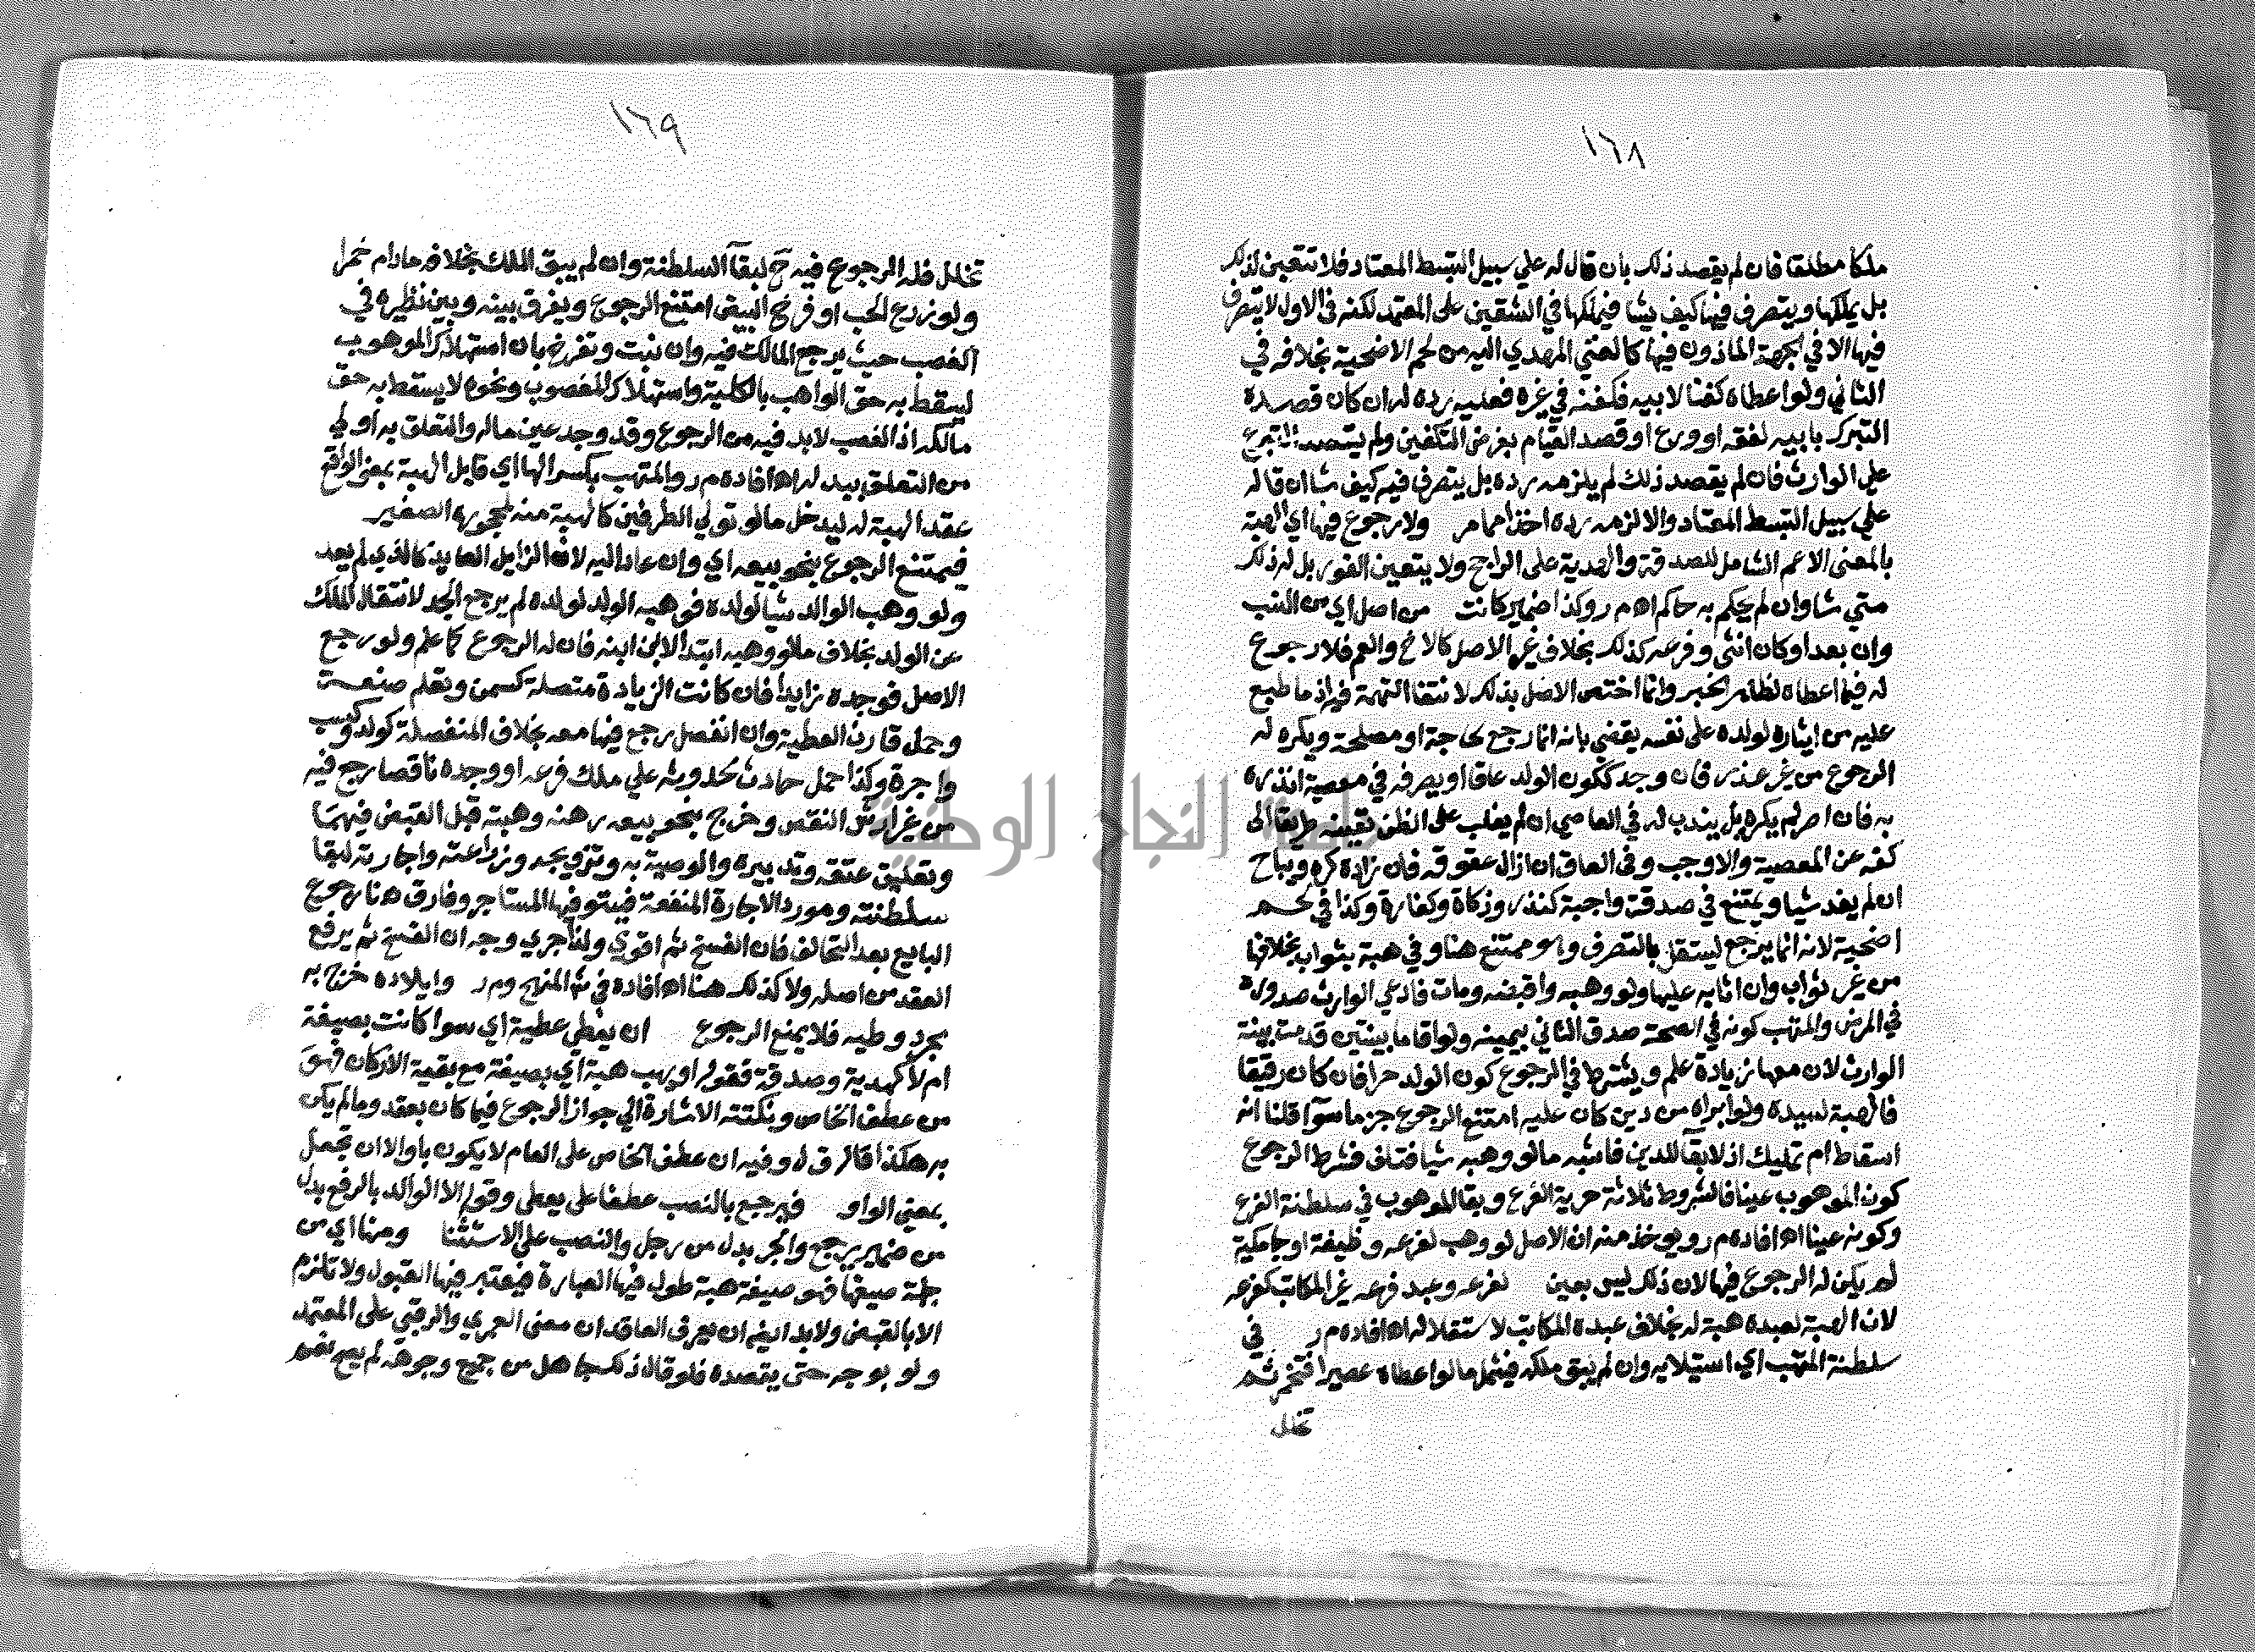 ١٦٨
ملكا مطلقا فان لم يقصد ذلك بان قال له علي سبيل التبسط المعتاد فلا تتعين لذلك
بل يملكها ويتصرف فيها كيف يشا فيملكها في الشقين على المعتمد لكنه في الاول لا يتصرف
فيها الا في الجهة الماذون فيها كالغني المهدي اليه من لحم الاضحية بخلافه في
الثاني ولو اعطاه كفنا لابيه فكفنه في غيره فعليه رده له ان كان قصده
التبرك بابيه لفقه او ورع او قصد القيام بفرض التكفين ولم يقصد التبرع
علي الوارث فان لم يقصد ذلك لم يلزمه رده بل يتصرف فيه كيف شا ان قاله
علي سبيل التبسط المعتاد والا لزمه رده اخذا مما مر ولا رجوع فيها اي الهبة
بالمعني الاعم الشامل للصدقة والهدية على الراجح ولا يتعين الفور بل له ذلك
متي شا وان لم يحكم به حاكم اه م ر وكذا ضمير كانت من اصل اي من النسب
وان بعد او كان انثي وفرعه كذلك بخلاف غير الاصل كالاخ والعم فلا رجوع
له فيما اعطاه لظاهر الخبر وانما اختص الاصل بذلك لانتفا التهمة فيه اذ ما طبع
عليه من ايثاره لولده على نفسه يقضي بانه انما رجع لحاجة او مصلحة ويكره له
الرجوع من غير عذر فان وجد ككون الولد عاقا او يصرفه في معصية انذره
به فان اصر لم يكره بل يندب له في العاصي ان لم يغلب على الظن تعينه طريقا الى
كفه عن المعصية والا وجب وفي العاق ان ازال عقوقه فان زاده كره ويباح
ان لم يفد شيا ويمتنع في صدقة واجبة كنذر وزكاة وكفارة وكذا في لحم
اضحية لانه انما يرجع ليستقل بالتصرف وهو ممتنع هنا وفي هبة بثواب بخلافها
من غير ثواب وان اثابه عليها ولو وهبه واقبضه ومات فادعي الوارث صدوره
في المرض والمتهب كونه في الصحة صدق الثاني بيمينه ولو اقاما بينتين قدمت بينة
الوارث لان معها زيادة علم ويشترط في الرجوع كون الولد حرا فان كان رقيقا
فالهبة لسيده ولو ابراه من دين كان عليه امتنع الرجوع جزما سوا قلنا انه
اسقاط ام تمليك اذ لا بقا للدين فاشبه ما لو وهبه شيا فتلف فشرط الرجوع
كون الموهوب عينا فالشروط ثلاثة حرية الفرع وبقا الموهوب في سلطنة الفرع
وكونه عينا اه افاده م ر ويوخذ منه ان الاصل لو وهب لفرعه وظيفة او جامكية
لم يكن له الرجوع فيها لان ذلك ليس بعين لفرعه وعبد فرعه غير المكاتب كفرعه
لان الهبة لعبده هبة له بخلاف عبده المكاتب لاستقلاله اه افاده م ر في
سلطنة المتهب اي استيلايه وان لم يبق ملكه فيشمل ما لو اعطاه عصيرا فتخمر ثم
تخلل
١٦٩
تخلل فله الرجوع فيه ح لبقا السلطنة وان لم يبق الملك بخلافه مادام خمرا
ولو زرع الحب او فرخ البيض امتنع الرجوع ويفرق بينه وبين نظيره في
الغصب حيث يرجع المالك فيه وان نبت وتفرخ بان استهلاك الموهوب
ليسقط به حق الواهب بالكلية واستهلاك المغصوب ونحوه لا يسقط به حق
مالكه اذ الغصب لا بد فيه من الرجوع وقد وجد عين ماله والتعلق به اولي
من التعلق ببدله اه افاده م ر والمتهب بكسر الها اي قابل الهبة بمعني الواقع
عقد الهبة له ليدخل ما لو تولي الطرفين كالهبة منه لمحجوره الصغير
فيمتنع الرجوع بنحو بيعه اي وان عاد اليه لان الزايل العايد كالذي لم يعد
ولو وهب الوالد شيا لولده فوهبه الولد لولده لم يرجع الجد لانتقال الملك
عن الولد بخلاف ما لو وهبه ابتدا لابن ابنه فان له الرجوع كما علم ولو رجع
الاصل فوجده زايدا فان كانت الزيادة متصلة كسمن وتعلم صنعة
وحمل قارن العطية وان انفصل رجع فيها معه بخلاف المنفصلة كولد وكسب
واجرة وكذا حمل حادث لحدوثه علي ملك فرعه او وجده ناقصا رجع فيه
من غير ارش النقص وخرج بنحو بيعه رهنه وهبته قبل القبض فيهما
وتعليق عتقه وتدبيره والوصية به وتزويجه وزراعته واجارته لبقا
سلطنته ومورد الاجارة المنفعة فيستوفيها المستاجر وفارق هنا رجوع
البايع بعد التحالف فان الفسخ ثم اقوي ولذا جري وجه ان الفسخ ثم يرفع
العقد من اصله ولا كذلك هنا اه افاده في ش المنهج وم ر وايلاده خرج به
مجرد وطيه فلا يمنع الرجوع ان يعطي عطية اي سوا كانت بصيغة
ام لا كهدية وصدقة فقوله او يهب هبة اي بصيغة مع بقية الاركان فهو
من عطف الخاص ونكتته الاشارة الي جواز الرجوع فيما كان بعقد وما لم يكن
به هكذا قاله ق ل وفيه ان عطف الخاص على العام لا يكون باو الا ان تجعل
بمعني الواو فيرجع بالنصب عطفا على يعطي وقوله الا الوالد بالرفع بدل
من ضمير يرجع والجر بدل من رجل والنصب علي الاستثنا ومنها اي من
جملة صيغها فهو صيغة هبة طول فيها العبارة فيعتبر فيها القبول ولا تلزم
الا بالقبض ولا بد ايضا ان يعرف العاقدان معني العمري والرقبي على المعتمد
ولو بوجه حتى يقصده فلو قال ذلك جاهل من جميع وجوهه لم يصح نعم
جامعة النجاح الوطنية